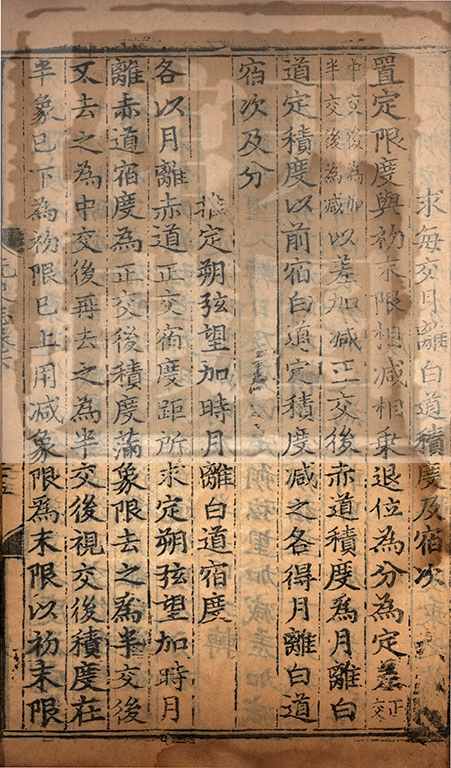 求每交月離白道積度及宿次
置定限度與初末限相減相乘退位為分為定差正交
中交後為加半交後為减以差加减正交後赤道積度爲月離白
道定積度以前宿白道定積度減之各得月離白道
宿次及分
推定朔弦望加時月離白道宿度
各以月離赤道正交宿度距所求定朔弦望加時月
離赤道宿度為正交後積度滿象限去之爲半交後
又去之為中交後再去之為半交後視交後積度在
半象已下為初限已上用減象限爲末限以初末限